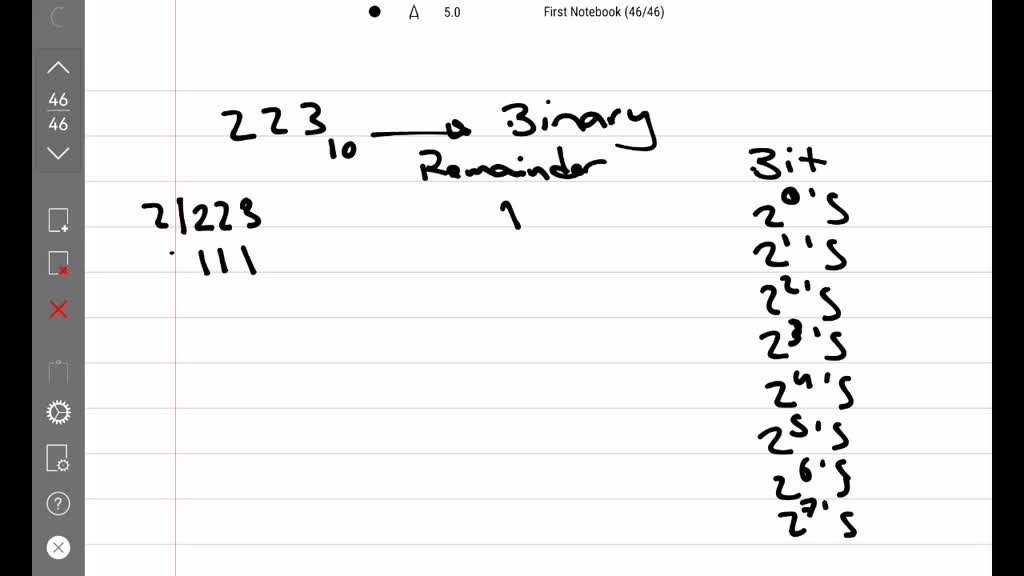 5.0 First Notebook (46/46)
46
46
223₁₀ → Binary
Remainder Bit
2|223 1 2⁰'s
111 2¹'s
2²'s
2³'s
2⁴'s
2⁵'s
2⁶'s
2⁷'s
?